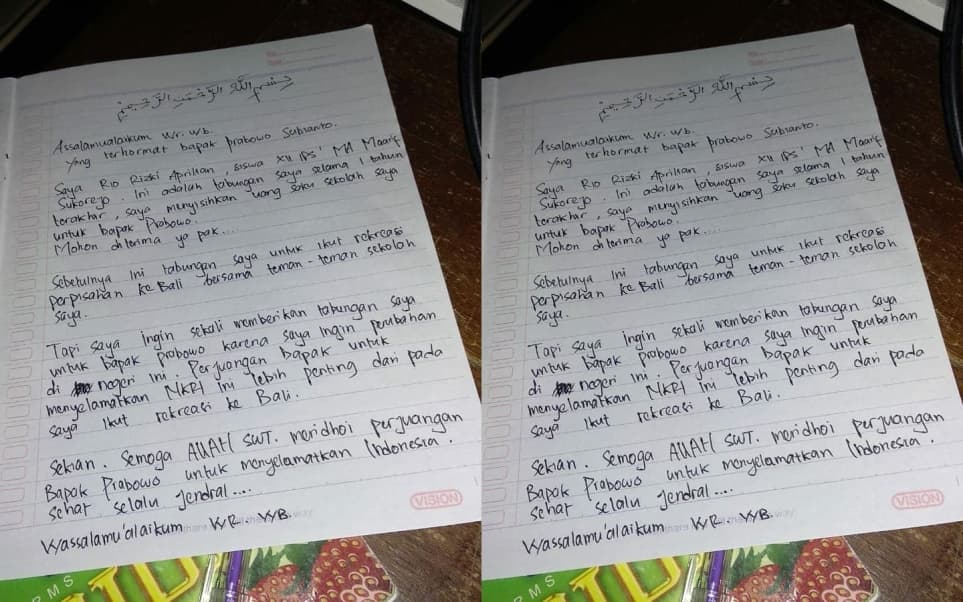 بسم الله الرحمن الرحيم
Assalamualaikum Wr. Wb.
Yang terhormat bapak Prabowo Subianto.
Saya Rio Rizki Aprilian, siswa XII IPS' MA Maarif
Sukorejo. Ini adalah tabungan saya selama 1 tahun
terakhir, saya menyisihkan uang saku sekolah saya
untuk bapak Prabowo.
Mohon diterima ya pak....
Sebetulnya ini tabungan saya untuk ikut rekreasi
perpisahan ke Bali bersama teman-teman sekolah
saya.
Tapi saya ingin sekali memberikan tabungan saya
untuk bapak Prabowo karena saya ingin perubahan
di negeri ini. Perjuangan bapak untuk
menyelamatkan NKRI ini lebih penting dari pada
saya ikut rekreasi ke Bali.
Sekian. Semoga ALLAH SWT. meridhoi perjuangan
Bapak Prabowo untuk menyelamatkan Indonesia.
sehat selalu Jendral....
VISION
Wassalamu'alaikum WR. WB.
RMS
بسم الله الرحمن الرحيم
Assalamualaikum Wr. Wb.
Yang terhormat bapak Prabowo Subianto.
Saya Rio Rizki Aprilian, siswa XII IPS' MA Maarif
Sukorejo. Ini adalah tabungan saya selama 1 tahun
terakhir, saya menyisihkan uang saku sekolah saya
untuk bapak Prabowo.
Mohon diterima ya pak....
Sebetulnya ini tabungan saya untuk ikut rekreasi
perpisahan ke Bali bersama teman-teman sekolah
saya.
Tapi saya ingin sekali memberikan tabungan saya
untuk bapak Prabowo karena saya ingin perubahan
di negeri ini. Perjuangan bapak untuk
menyelamatkan NKRI ini lebih penting dari pada
saya ikut rekreasi ke Bali.
Sekian. Semoga ALLAH SWT. meridhoi perjuangan
Bapak Prabowo untuk menyelamatkan Indonesia.
sehat selalu Jendral....
VISION
Wassalamu'alaikum WR. WB.
RMS